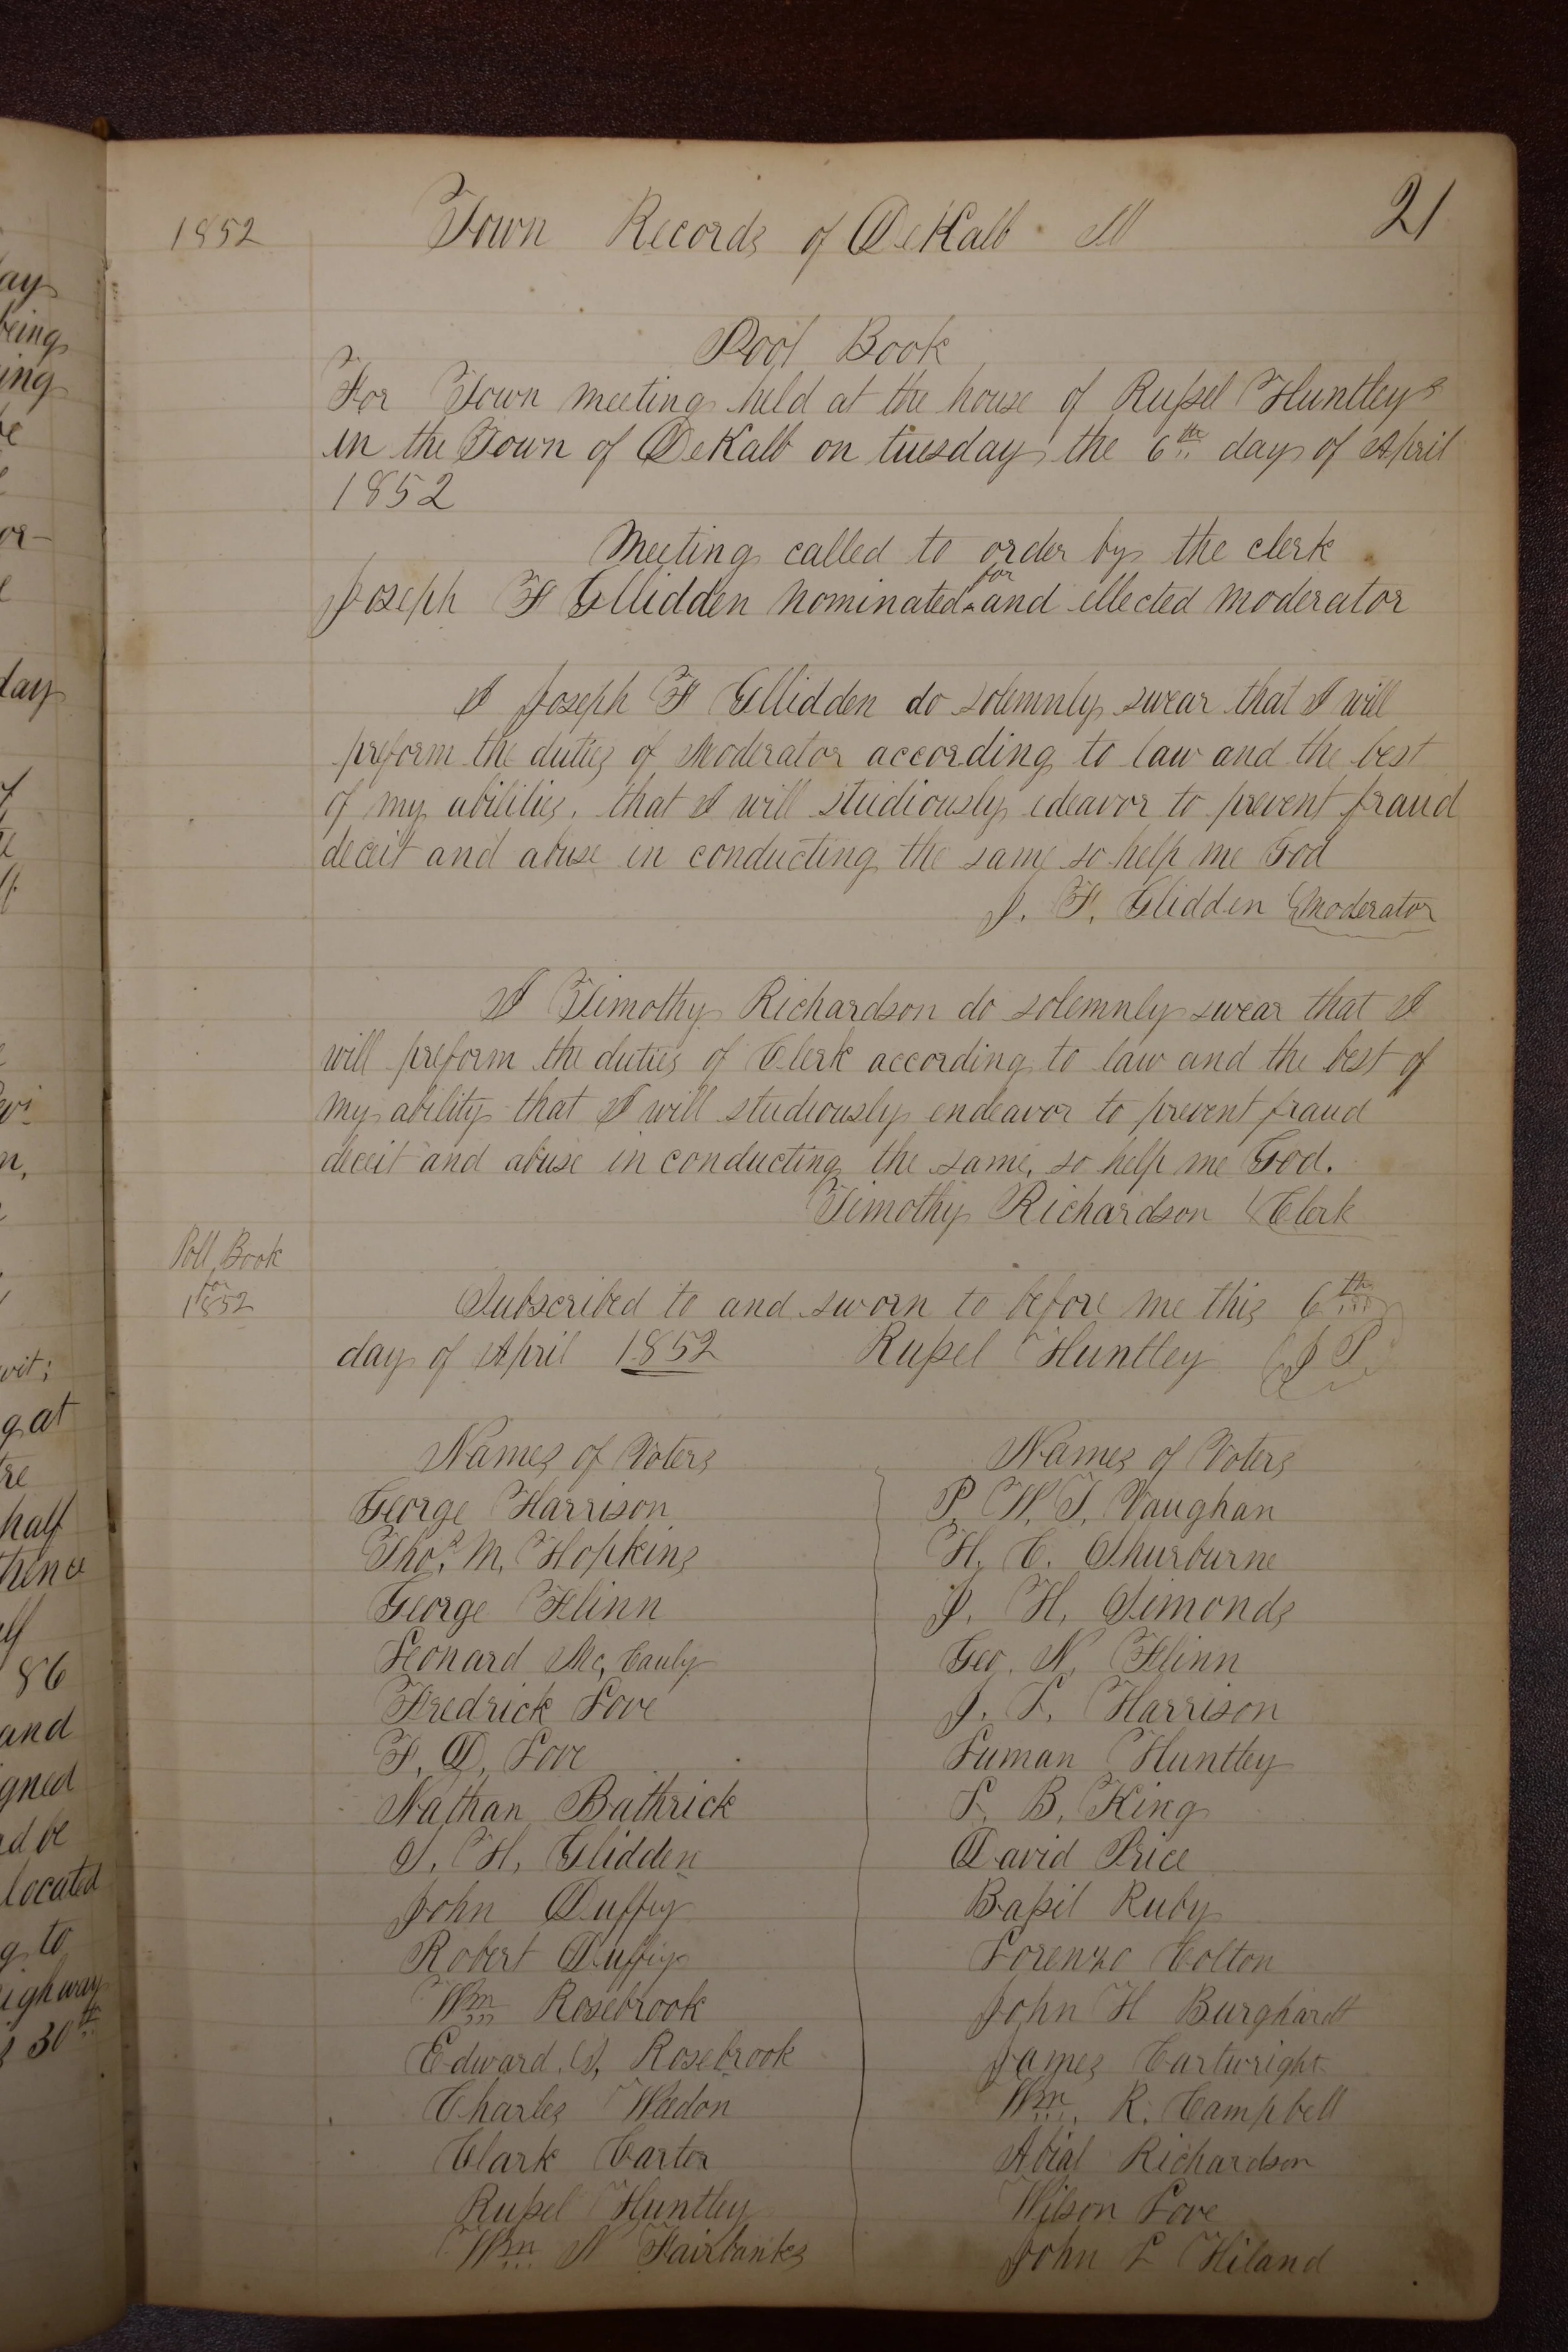 1852
Town Records of DeKalb Ill
21
Pool Book
For Town meeting held at the house of Russel Huntleys
in the Town of DeKalb on tuesday the 6th day of April
1852
Meeting called to order by the clerk
for
Joseph F Gllidden nominated ^ and ellected moderator
I Joseph F Gllidden do solemnly swear that I will
preform the duties of Moderator according to law and the best
of my abilities, that I will studiously edeavor to prevent fraud
deceit and abuse in conducting the same so help me God
J. F. Glidden Moderator
I Timothy Richardson do solemnly swear that I
will preform the duties of Clerk according to law and the best of
my ability that I will studiously endeavor to prevent fraud
deceit and abuse in conducting the same, so help me God.
Timothy Richardson Clerk
Poll Book
for
1852
Subscribed to and sworn to before me this 6th
day of April 1852 Russel Huntley J P.
Names of Voters
George Harrison
Thos. M. Hopkins
George Flinn
Leonard Mc, Cauly
Fredrick Love
F. D. Love
Nathan Bathrick
J. H. Glidden
John Duffey
Robert Duffey
Wm Rosebrook
Edward. S, Rosebrook
Charles Weedon
Clark Carter
Russel Huntley
Wm N Fairbanks
Names of Voters
P. W. T. Vaughan
H. C. Shurburne
J. H. Simonds
Geo. N. Flinn
J. L. Harrison
Luman Huntley
L. B. King
David Price
Bassil Ruby
Lorenzo Colton
John H Burghardt
James Cartwright
Wm. R. Campbell
Abial Richardson
Wilson Love
John L Hiland
ay
being
ing
or-
day
n,
wit;
g at
half
thence
86
and
igned
nd be
located
g to
ighway
30th